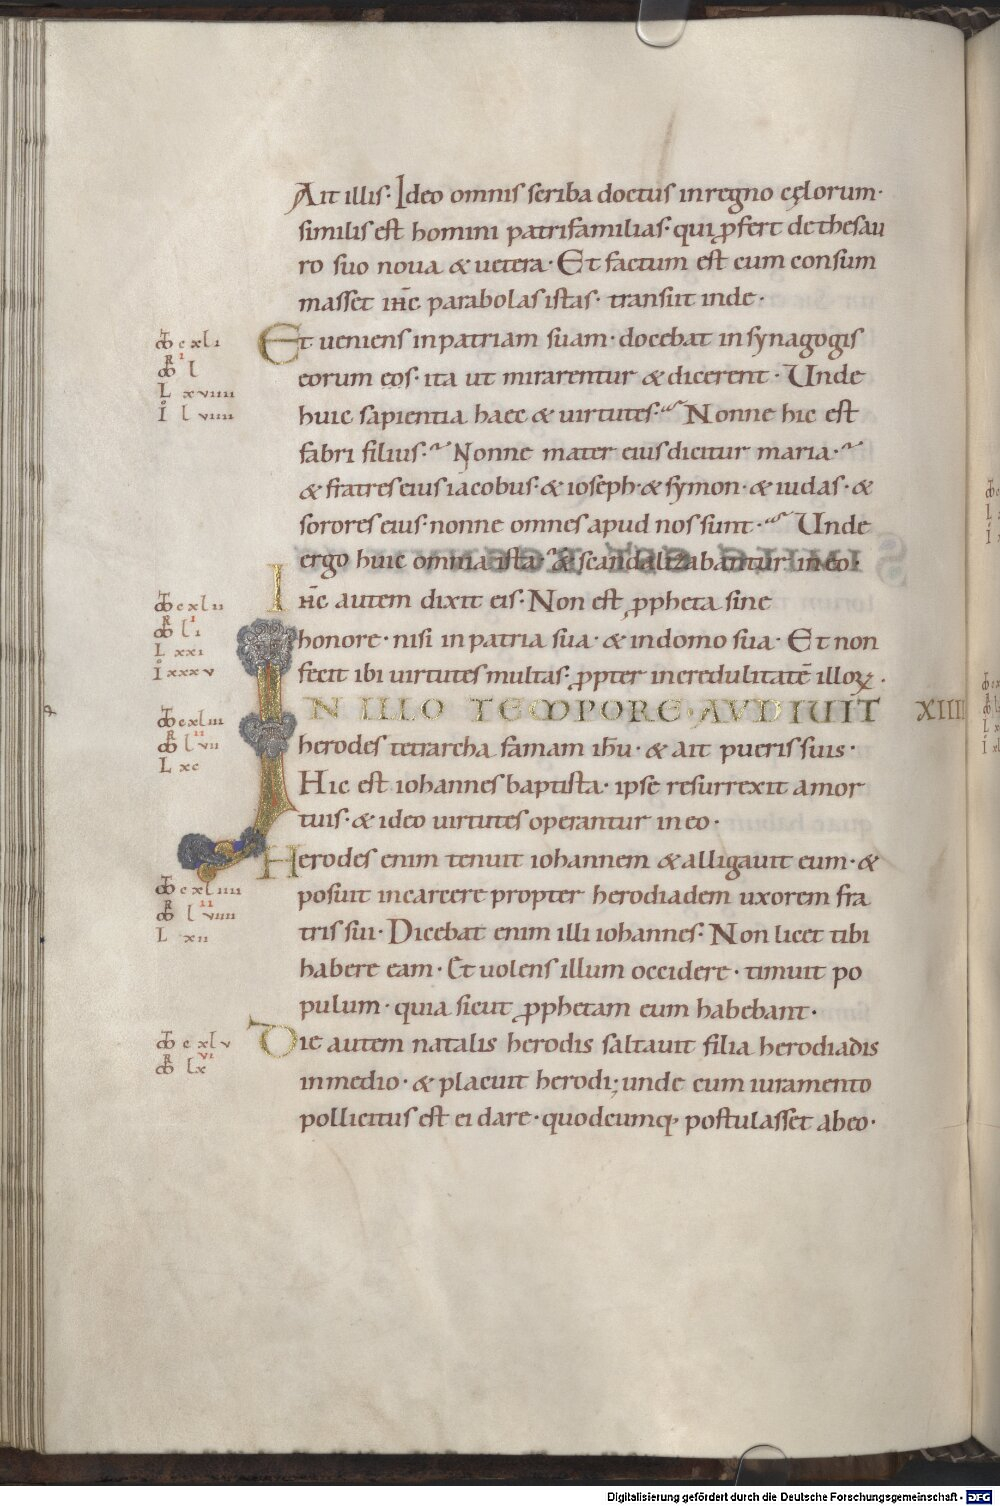 Ait illis· Ideo omnis scriba doctus in regno cęlorum·
similis est homini patrifamilias· qui ꝓfert de thesau
ro suo noua & uetera· Et factum est cum consum
masset ih̅c parabolas istas· transiit inde·
Et ueniens in patriam suam· docebat in synagogis
ꝏ c xl i
R i
ꝏ l
L xviiii
I l viiii
eorum eos· ita ut mirarentur & dicerent· Unde
huic sapientia haec & uirtutes· Nonne hic est
fabri filius· Nonne mater eius dicitur maria·
& fratres eius iacobus· & ioseph· & symon· & iudas· &
sorores eius· nonne omnes apud nos sunt· Unde
ergo huic omnia ista· & scandalizabantur in eo·
Ih̅c autem dixit eis· Non est ꝓpheta sine
ꝏ c xl ii
R i
ꝏ l i
L xxi
I xxxv
honore· nisi in patria sua· & in domo sua· Et non
fecit ibi uirtutes multas· ꝓpter incredulitatē illoꝝ·
IN ILLO TEMPORE· AVDIUIT XIIII
ꝏ c xl iii
R ii
ꝏ l vii
L xc
herodes tetrarcha famam ih̅u· & ait pueris suis·
Hic est iohannes baptista· ipse resurrexit a mor
tuis· & ideo uirtutes operantur in eo·
Herodes enim tenuit iohannem & alligauit eum· &
ꝏ c xl iiii
R ii
ꝏ l viiii
L xii
posuit in carcere propter herodiadem uxorem fra
tris sui· Dicebat enim illi iohannes· Non licet tibi
habere eam· Et uolens illum occidere· timuit po
pulum· quia sicut ꝓphetam eum habebant·
Die autem natalis herodis saltauit filia herodiadis
ꝏ c xl v
R vi
ꝏ lx
in medio· & placuit herodi; unde cum iuramento
pollicitus est ei dare· quodcumq· postulasset ab eo·
Digitalisierung gefördert durch die Deutsche Forschungsgemeinschaft - DFG